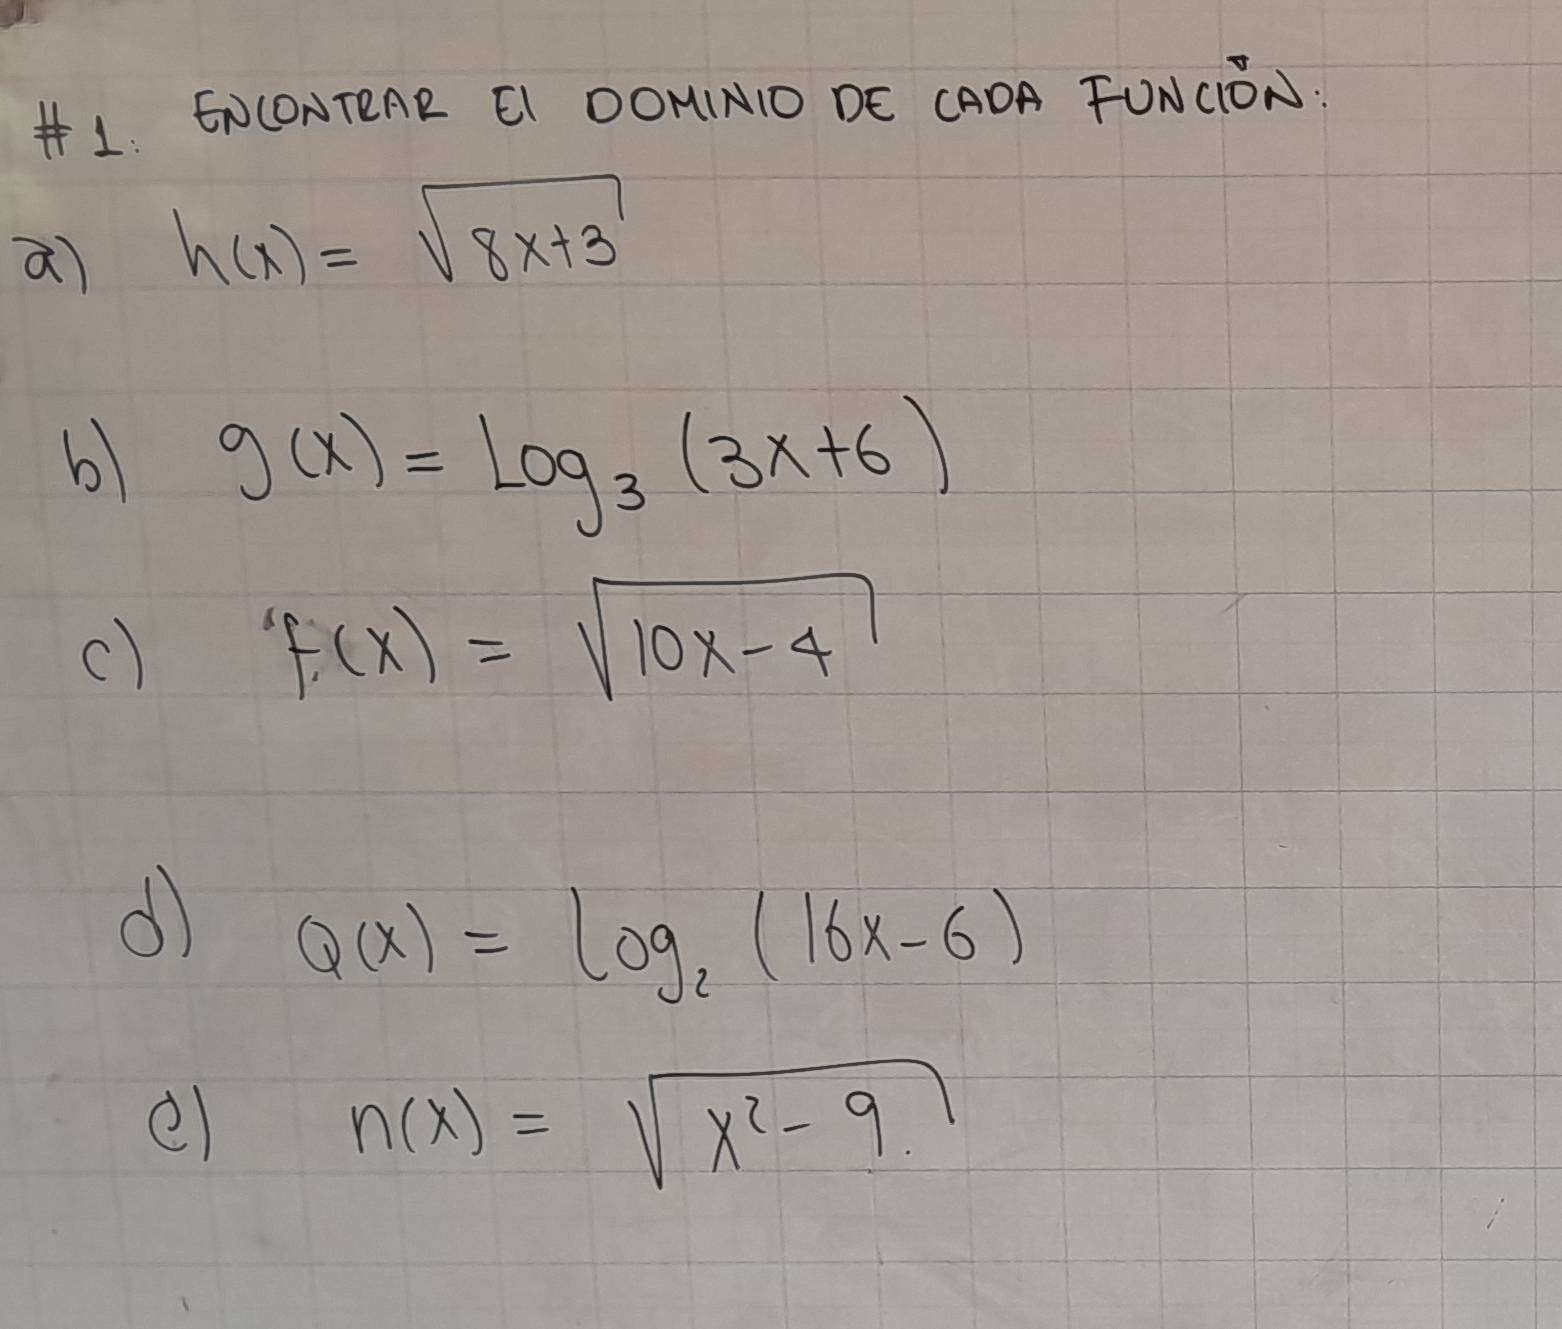 #1. ENCONTRAR El DOMINIO DE CADA FUNCIÓN:
a) h(x) = √8x+3
b) g(x) = Log₃ (3x+6)
c) f(x) = √10x-4
d) Q(x) = log₂ (16x-6)
e) n(x) = √x²-9.